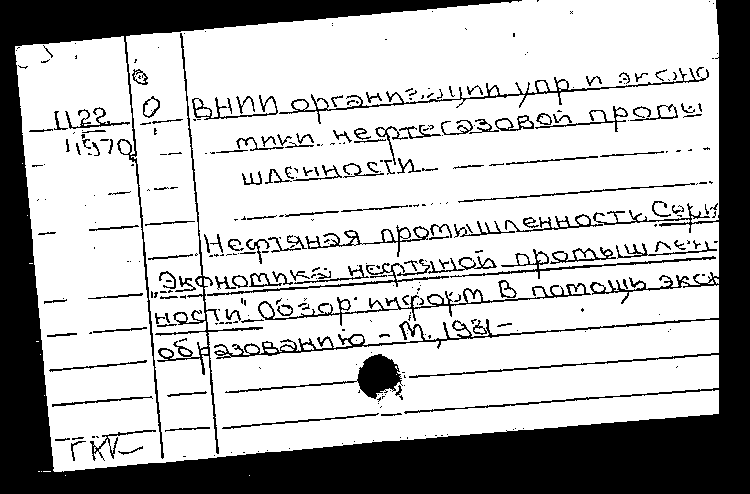 П22 О ВНИИ организации упр и эконо
11970 мики нефтегазовой промы
шленности
Нефтяная промышленность. Сери
"Экономика нефтяной промышлен-
ности". Обзор. информ. В помощь экон
образованию - М., 1981 -
ГКИ